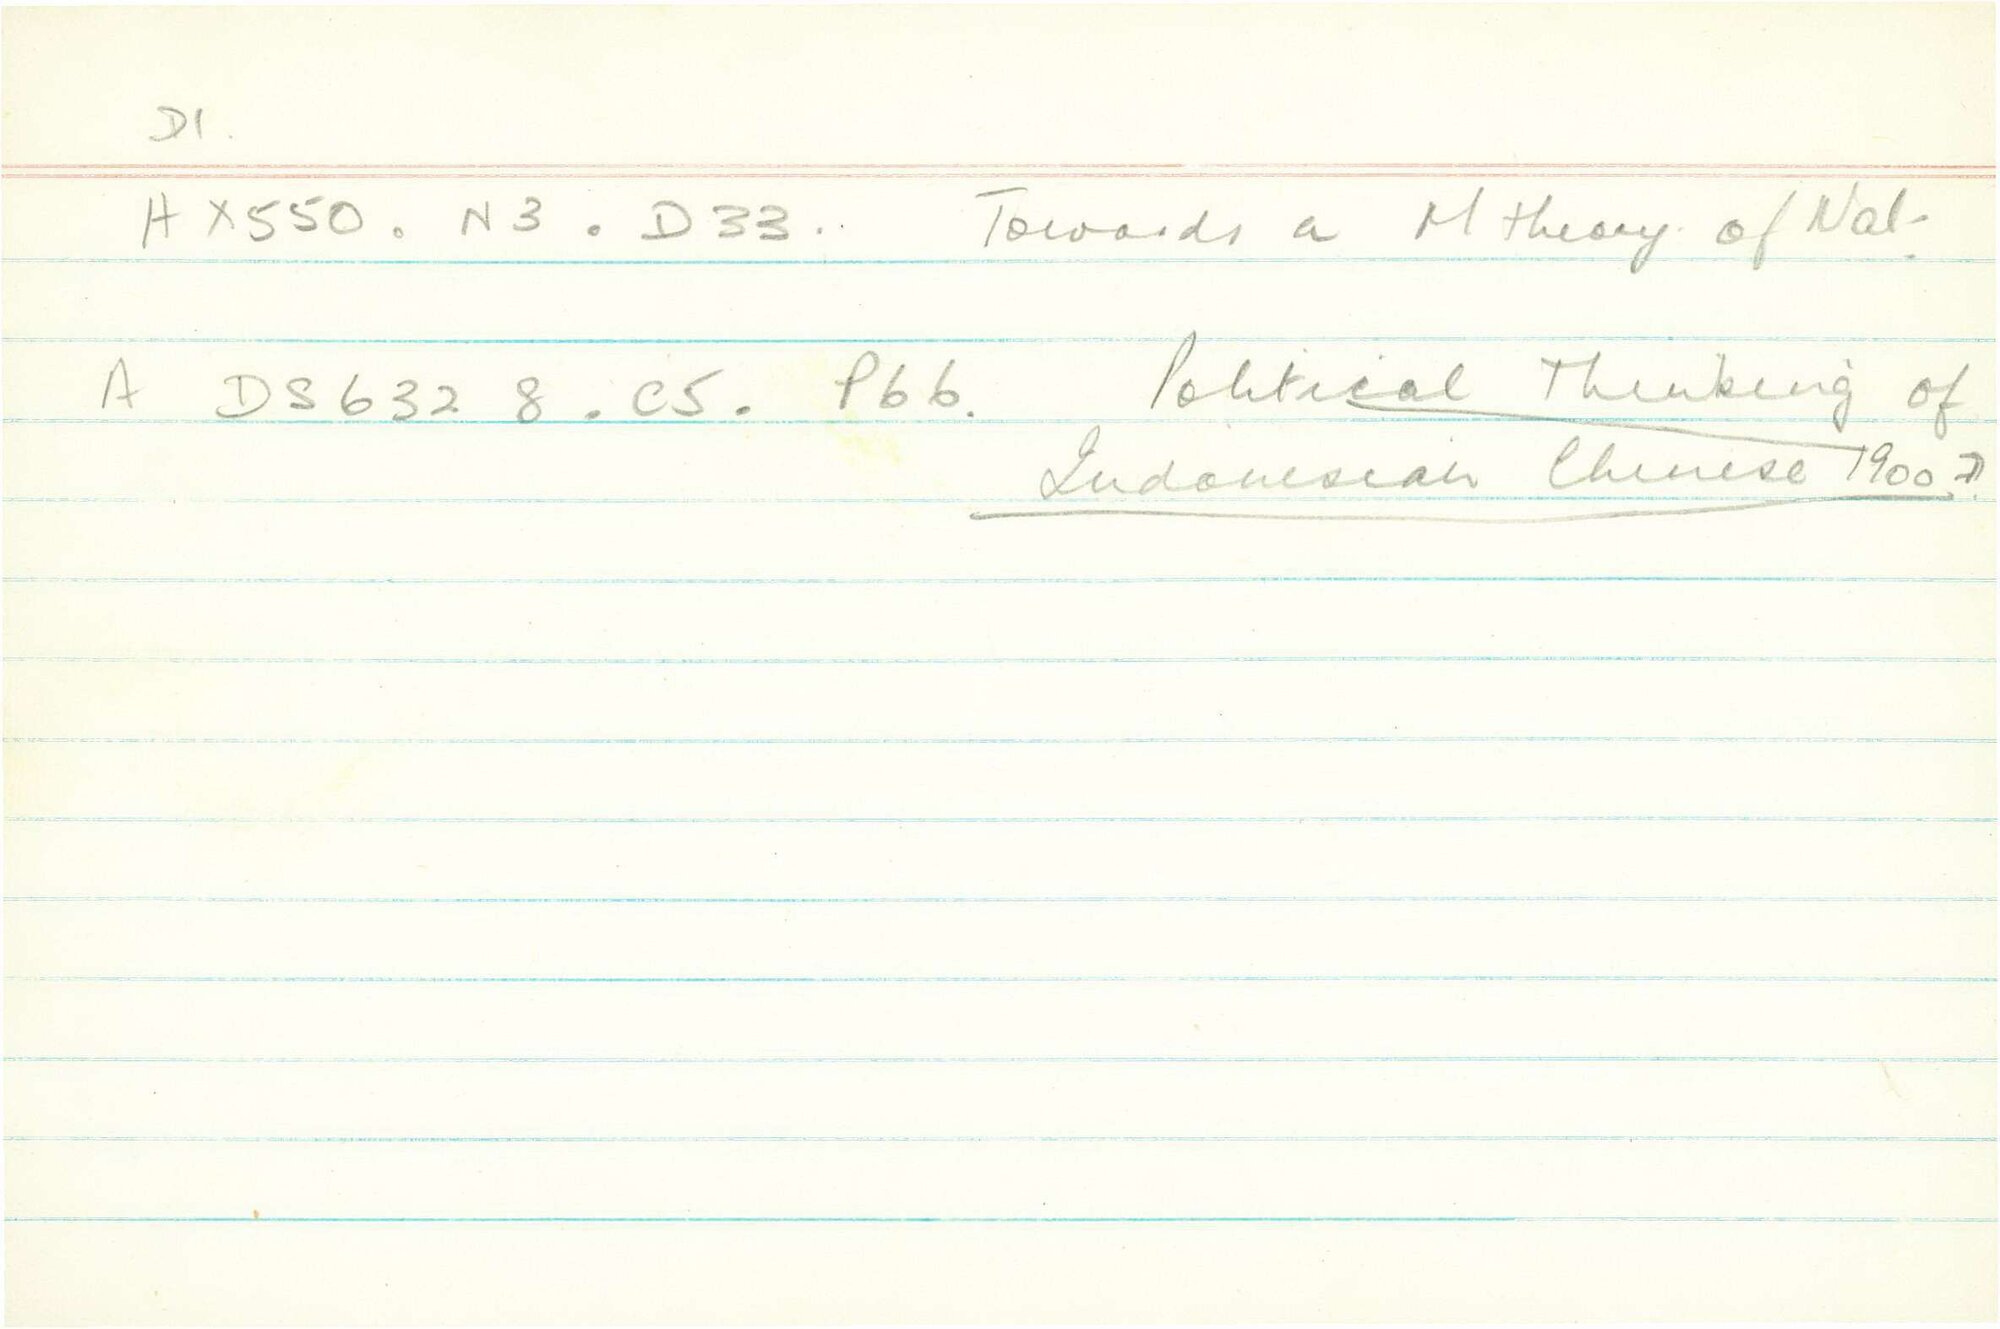 D1.
HX550. N3. D33. Towards a M theory of Nat.
A DS632 8. C5. P66. Political Thinking of
Indonesian Chinese 1900